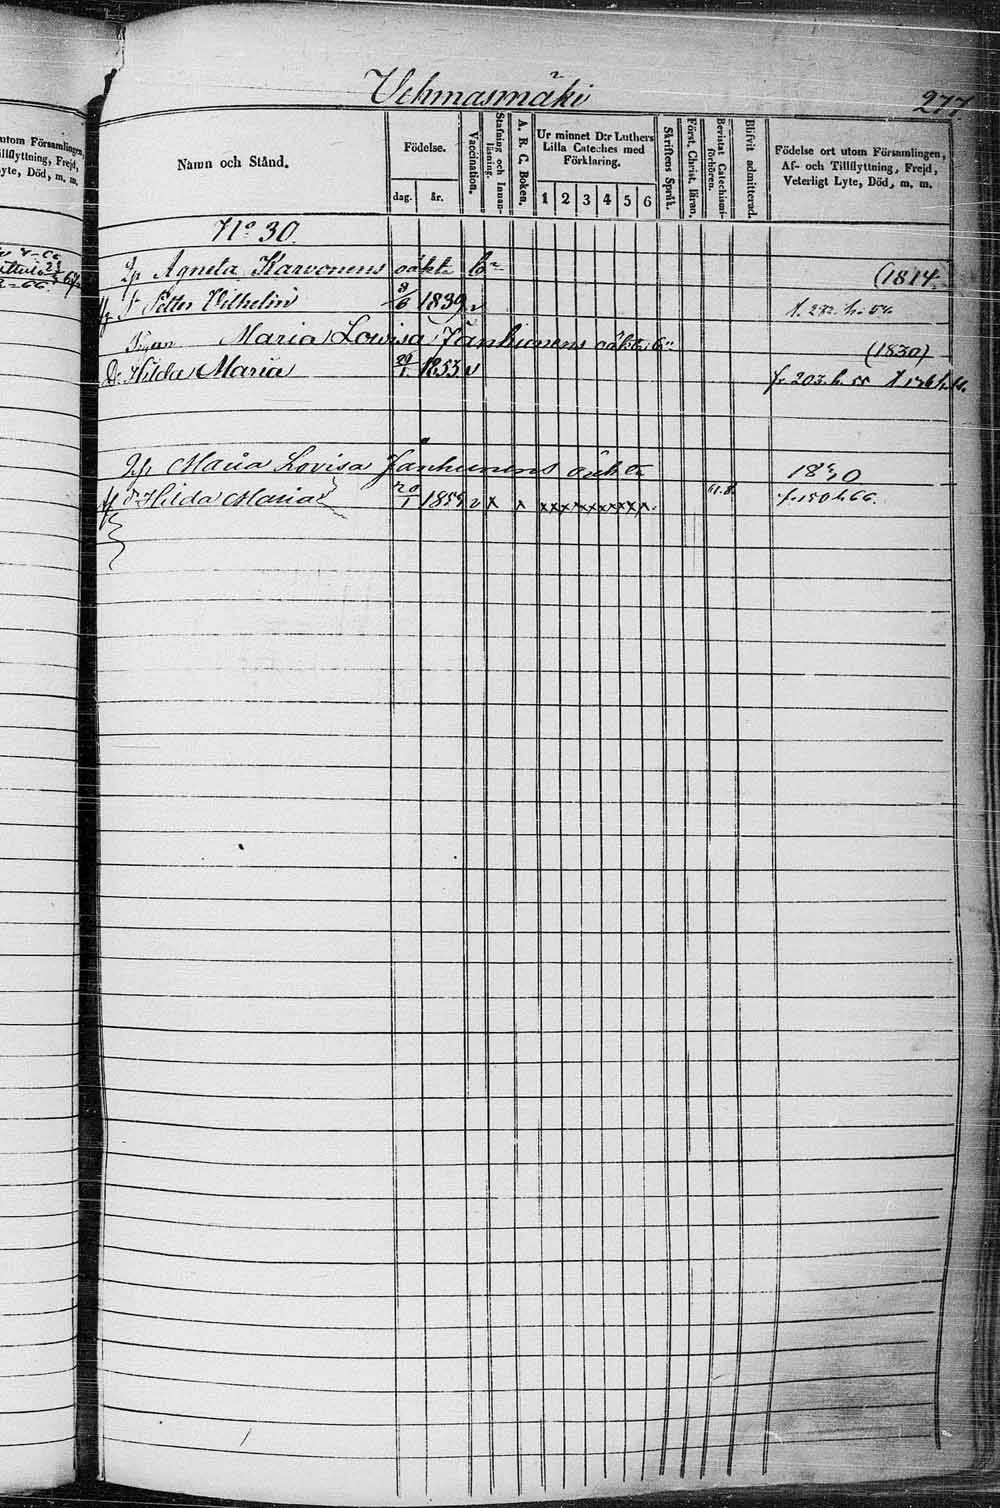 Vehmasmäki
277.
utom Församlingen,
Tillflyttning, Frejd,
Lyte, Död, m. m.
Namn och Stånd.
Födelse.
dag. år.
Vaccination.
Stafning och Innanläsning.
A. B. C. Boken.
Ur minnet D:r Luthers
Lilla Cateches med
Förklaring.
1 2 3 4 5 6
Skriftens Språk.
Först. Christ. läran.
Bevistat Catechismiförhören.
Blifvit admitterad.
Födelse ort utom Församlingen,
Af- och Tillflyttning, Frejd,
Veterligt Lyte, Död, m. m.
No 30.
Agneta Karvonens oäkta b. (1814.
Petter Vilhelm 8/6 1839 v
Maria Lovisa Jänhunens oäkta b. (1830)
Dr Hilda Maria 20/1 1855 v fr 203. h. 55
Maria Lovisa Jänhunens oäkta 1830
Hilda Maria 20/1 1855 v x x xxxxxxxxxx 61.8. f. 150 h 66.